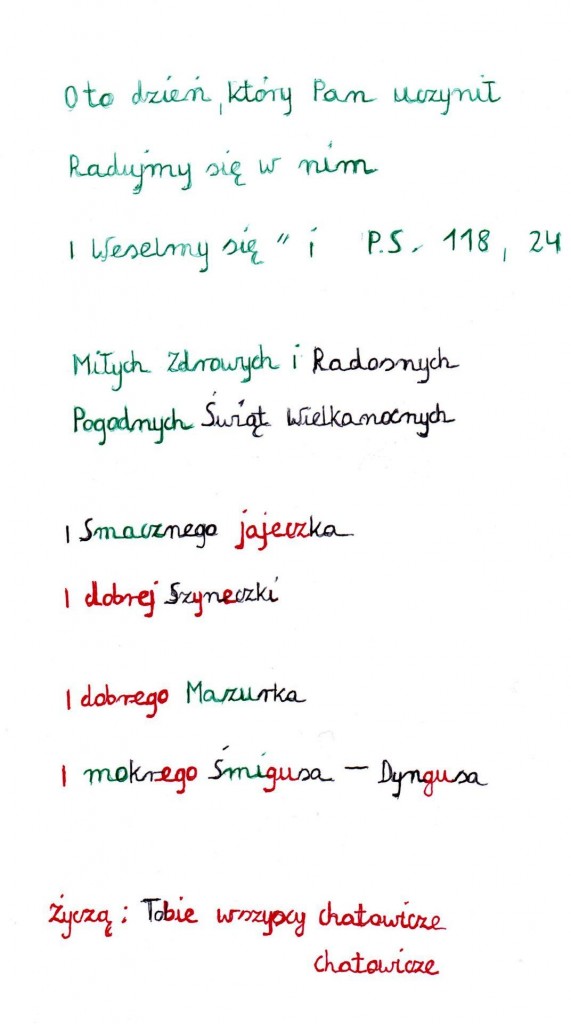 Oto dzień, który Pan uczynił
Radujmy się w nim
I Weselmy się" i P.S. 118, 24
Miłych Zdrowych i Radosnych
Pogodnych Świąt Wielkanocnych
I Smacznego jajeczka
I dobrej Szyneczki
I dobrego Mazurka
I mokrego Śmigusa - Dyngusa
Życzą; Tobie wszyscy chatowicze
chatowicze